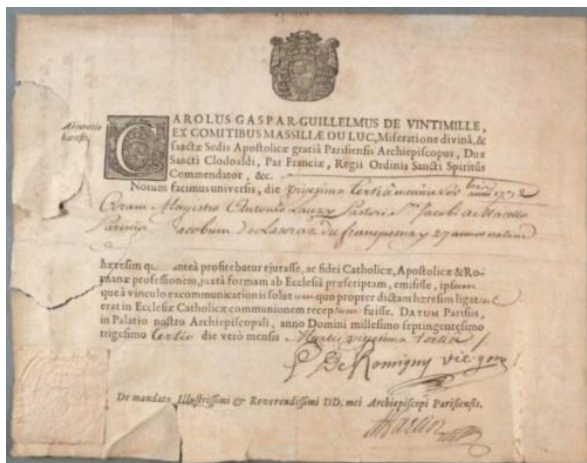 Abjuratio
hæresis.
CAROLUS GASPAR-GUILLELMUS DE VINTIMILLE,
EX COMITIBUS MASSILLÆ DU LUC, Miseratione divinâ, &
sanctæ Sedis Apostolicæ gratiâ Parisiensis Archiepiscopus, Dux
Sancti Clodoaldi, Par Franciæ, Regii Ordinis Sancti Spiritûs
Commendator, &c.
Notum facimus universis, die vigesima tertiâ
Coram Magistro Antonio Pastore Sti Jacobi a Macello
Jacobum de 27 annos natum
hæresim qu anteà profitebatur ejurasse, ac fidei Catholicæ, Apostolicæ & Ro-
manæ professionem, juxtà formam ab Ecclesiâ præscriptam, emisisse, ipsum
que à vinculo excommunicationis solutum quo propter dictam hæresim ligatus
erat in Ecclesiæ Catholicæ communionem receptum fuisse. DATUM Parisiis,
in Palatio nostro Archiepiscopali, anno Domini millesimo septingentesimo
trigesimo tertio die verò mensis Martii vigesima tertia
De Romigny vic. gen.
De mandato Illustrissimi & Reverendissimi DD. mei Archiepiscopi Parisiensis.